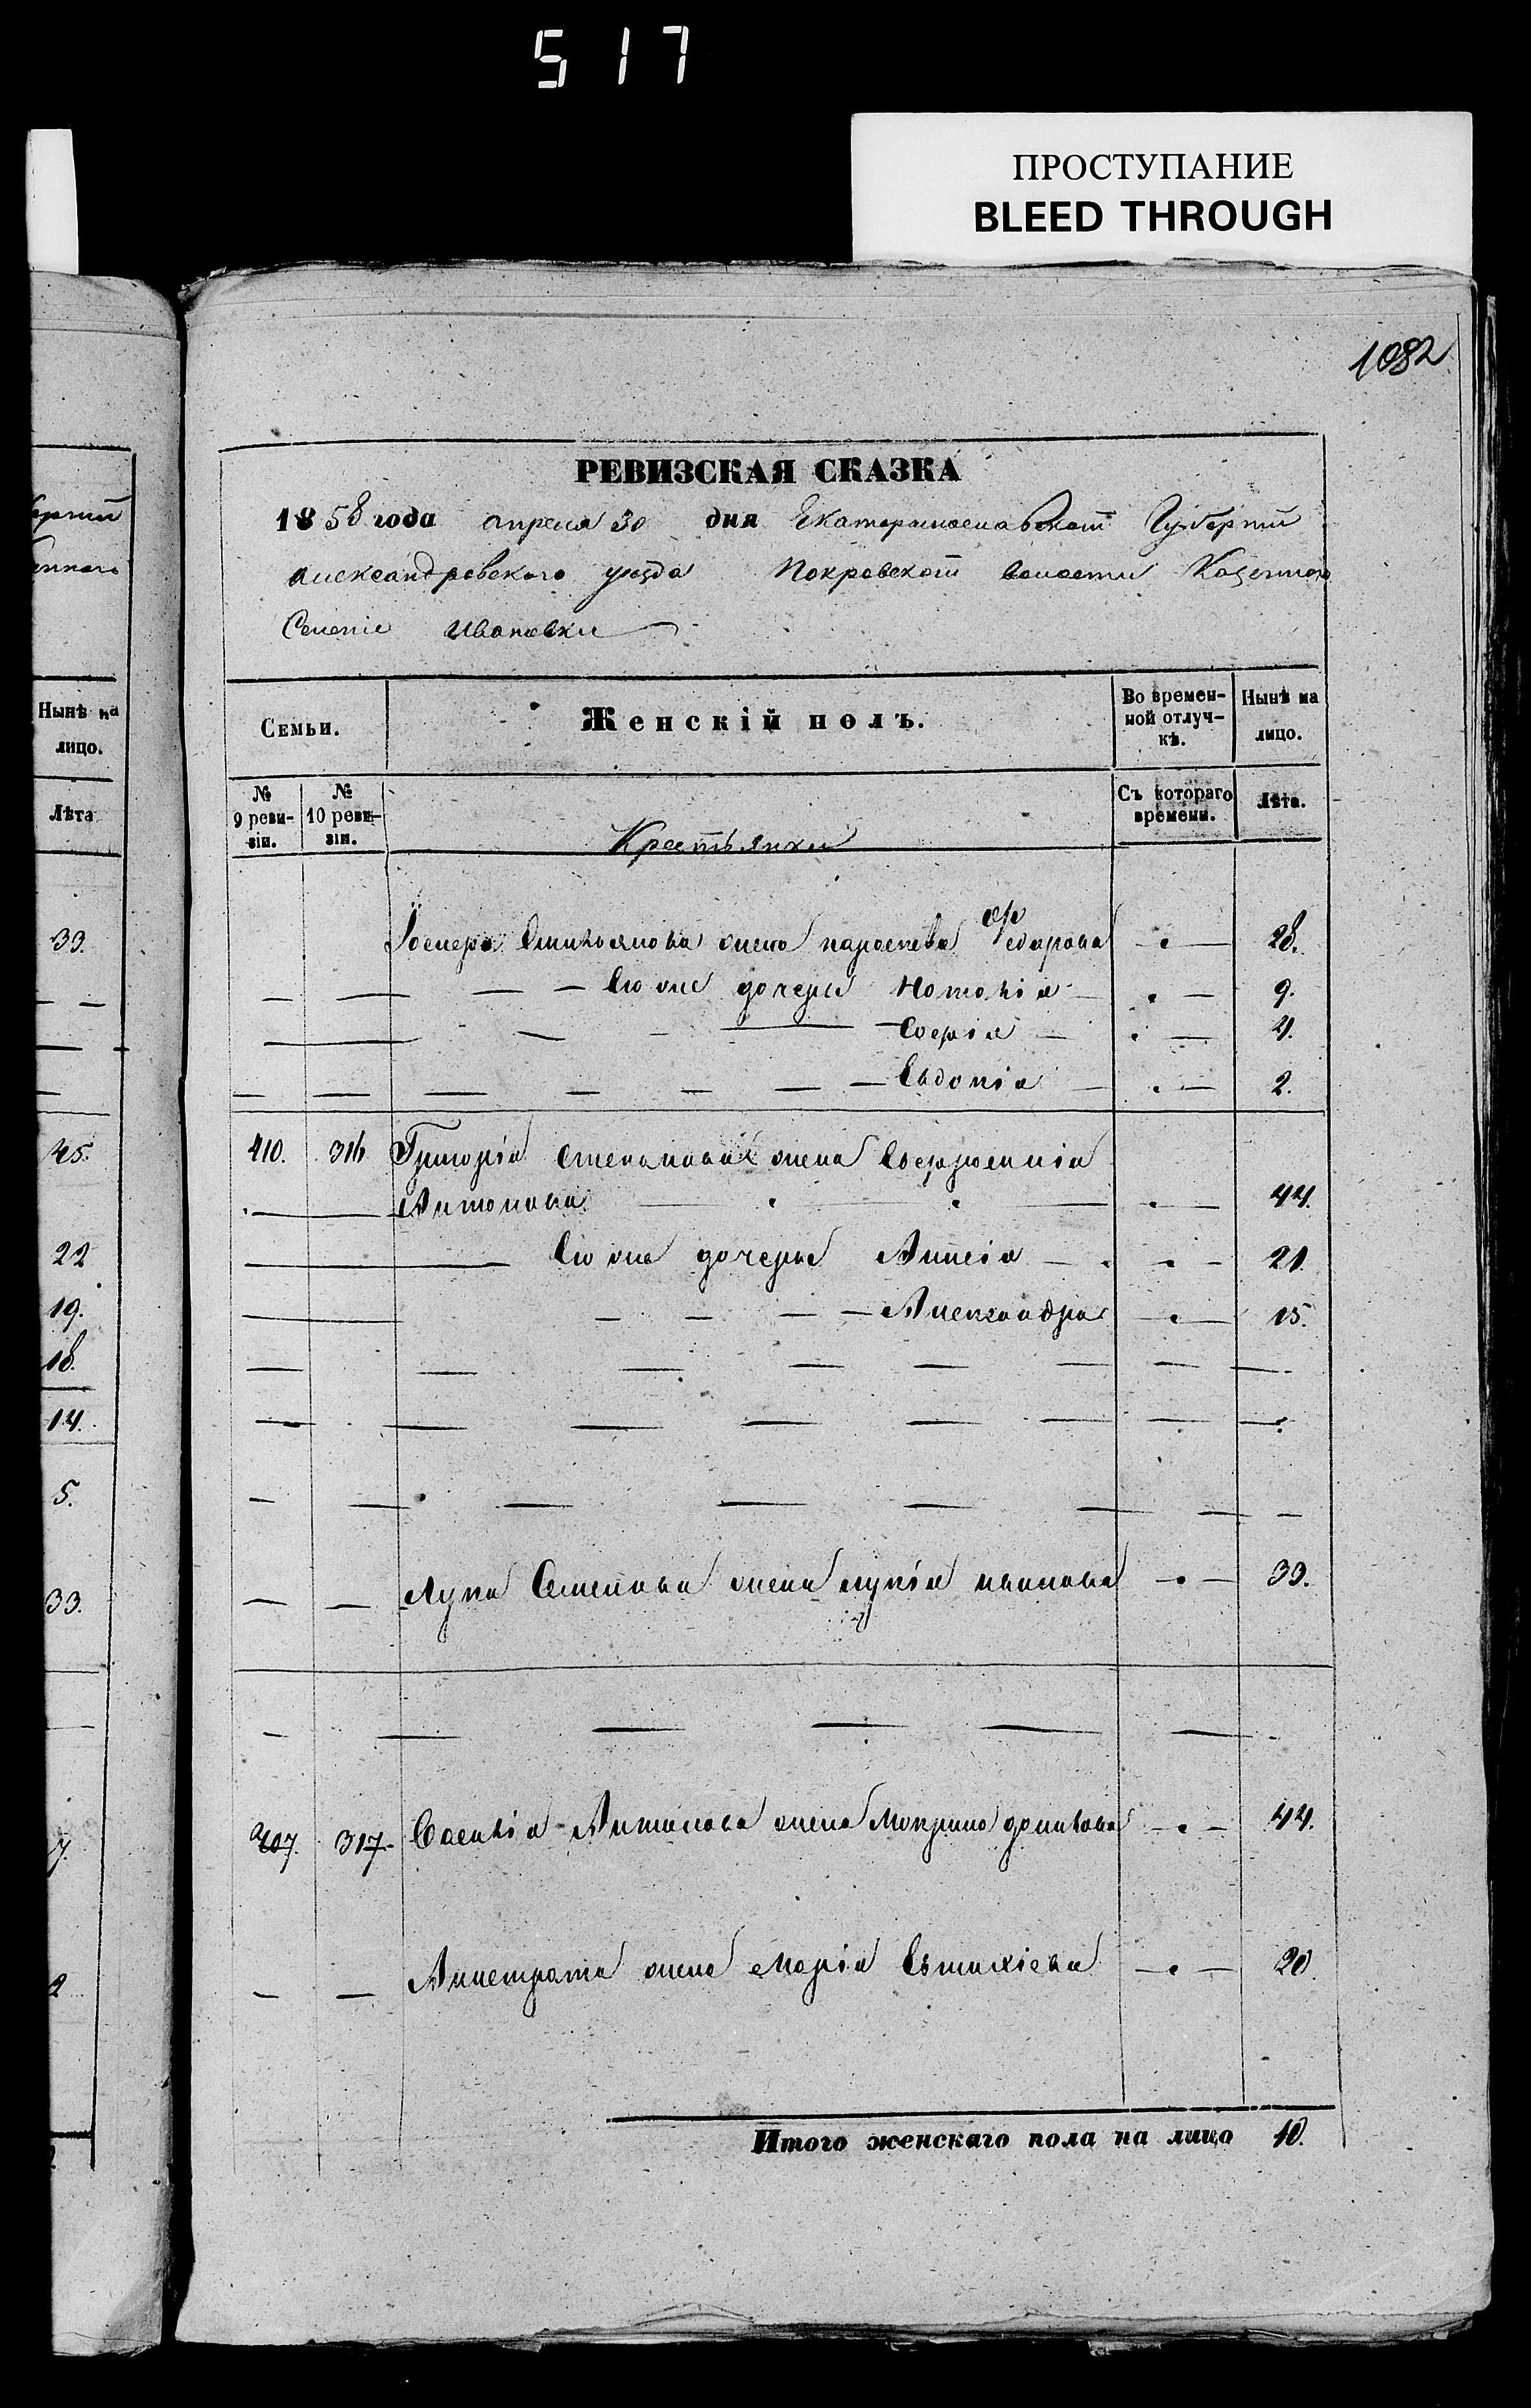 517
ПРОСТУПАНИЕ
BLEED THROUGH
1082
РЕВИЗСКАЯ СКАЗКА
1858 года апреля 30 дня Екатеринославской Губерніи
Александровского уезда Покровской волости Казенного
Селеніе Ивановки
Семьи.
Женскій полъ.
Во времен-
ной отлуч-
кѣ.
Нынѣ на
лицо.
№
9 реви-
зіи.
№
10 реви-
зіи.
Крестьянки
Съ котораго
времени.
Лѣта.
Емильянова жена параскева Федорова 28.
Его же дочери Наталія 9.
Софія 4.
Евдокія 2.
410. 316 Григорія Степанова жена Ефросинія
Антонова 44.
Его же дочери 21.
Александра 15.
Лука Семенова жена лукія иванова 33.
407. 317 Василія Антонова жена Мокрина 44.
жена Марія Евтихіева 20.
Итого женскаго пола на лицо 10.
Нынѣ на
лицо.
Лѣта
33.
45.
22
19.
18.
14.
5.
33.
7.
2